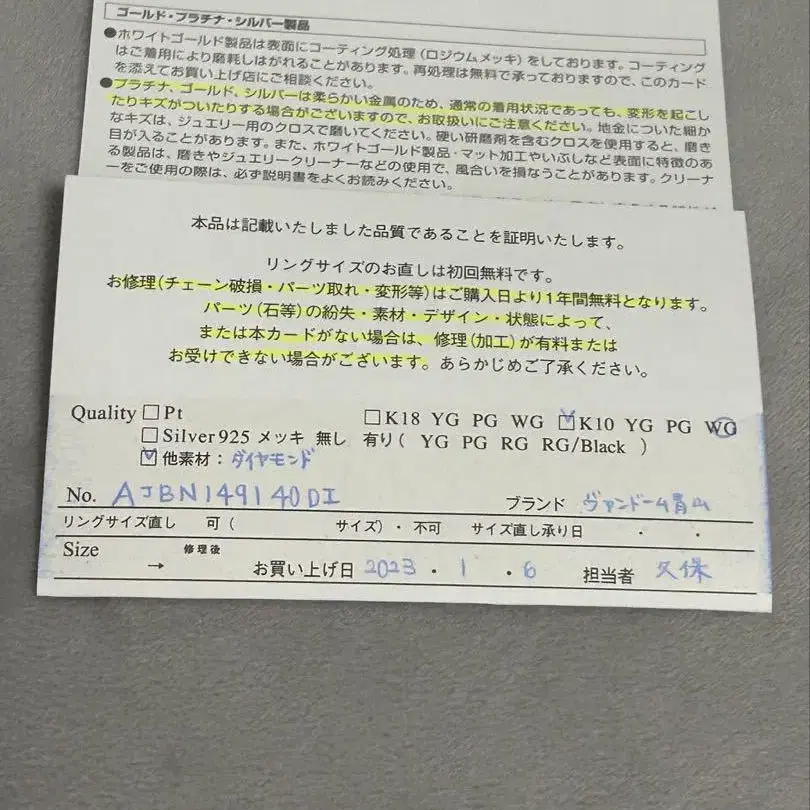 ゴールド・プラチナ・シルバー製品
●ホワイトゴールド製品は表面にコーティング処理(ロジウムメッキ)をしております。コーティング
はご着用により磨耗しはがれることがあります。再処理は無料で承っておりますので、このカード
を添えてお買い上げ店にご相談ください。
●プラチナ、ゴールド、シルバーは柔らかい金属のため、通常の着用状況であっても、変形を起こし
たりキズがついたりする場合がございますので、お取扱いにご注意ください。地金についた細か
なキズは、ジュエリー用のクロスで磨いてください。硬い研磨剤を含むクロスを使用すると、磨き
目が入ることがあります。また、ホワイトゴールド製品・マット加工やいぶしなど表面に特徴のあ
る製品は、磨きやジュエリークリーナーなどの使用で、風合いを損なうことがあります。クリーナ
ーをご使用の際は、必ず説明書をよくお読みください。
本品は記載いたしました品質であることを証明いたします。
リングサイズのお直しは初回無料です。
お修理(チェーン破損・パーツ取れ・変形等)はご購入日より1年間無料となります。
パーツ(石等)の紛失・素材・デザイン・状態によって、
または本カードがない場合は、修理(加工)が有料または
お受けできない場合がございます。あらかじめご了承ください。
Quality □Pt □K18 YG PG WG ☑K10 YG PG WG
□Silver925 メッキ 無し 有り( YG PG RG RG/Black )
☑他素材:ダイヤモンド
No. AJBN149140DI ブランド ヴァンドーム青山
リングサイズ直し 可( サイズ)・不可 サイズ直し承り日 ・ ・
Size → 修理後 お買い上げ日 2023・1・6 担当者 久保